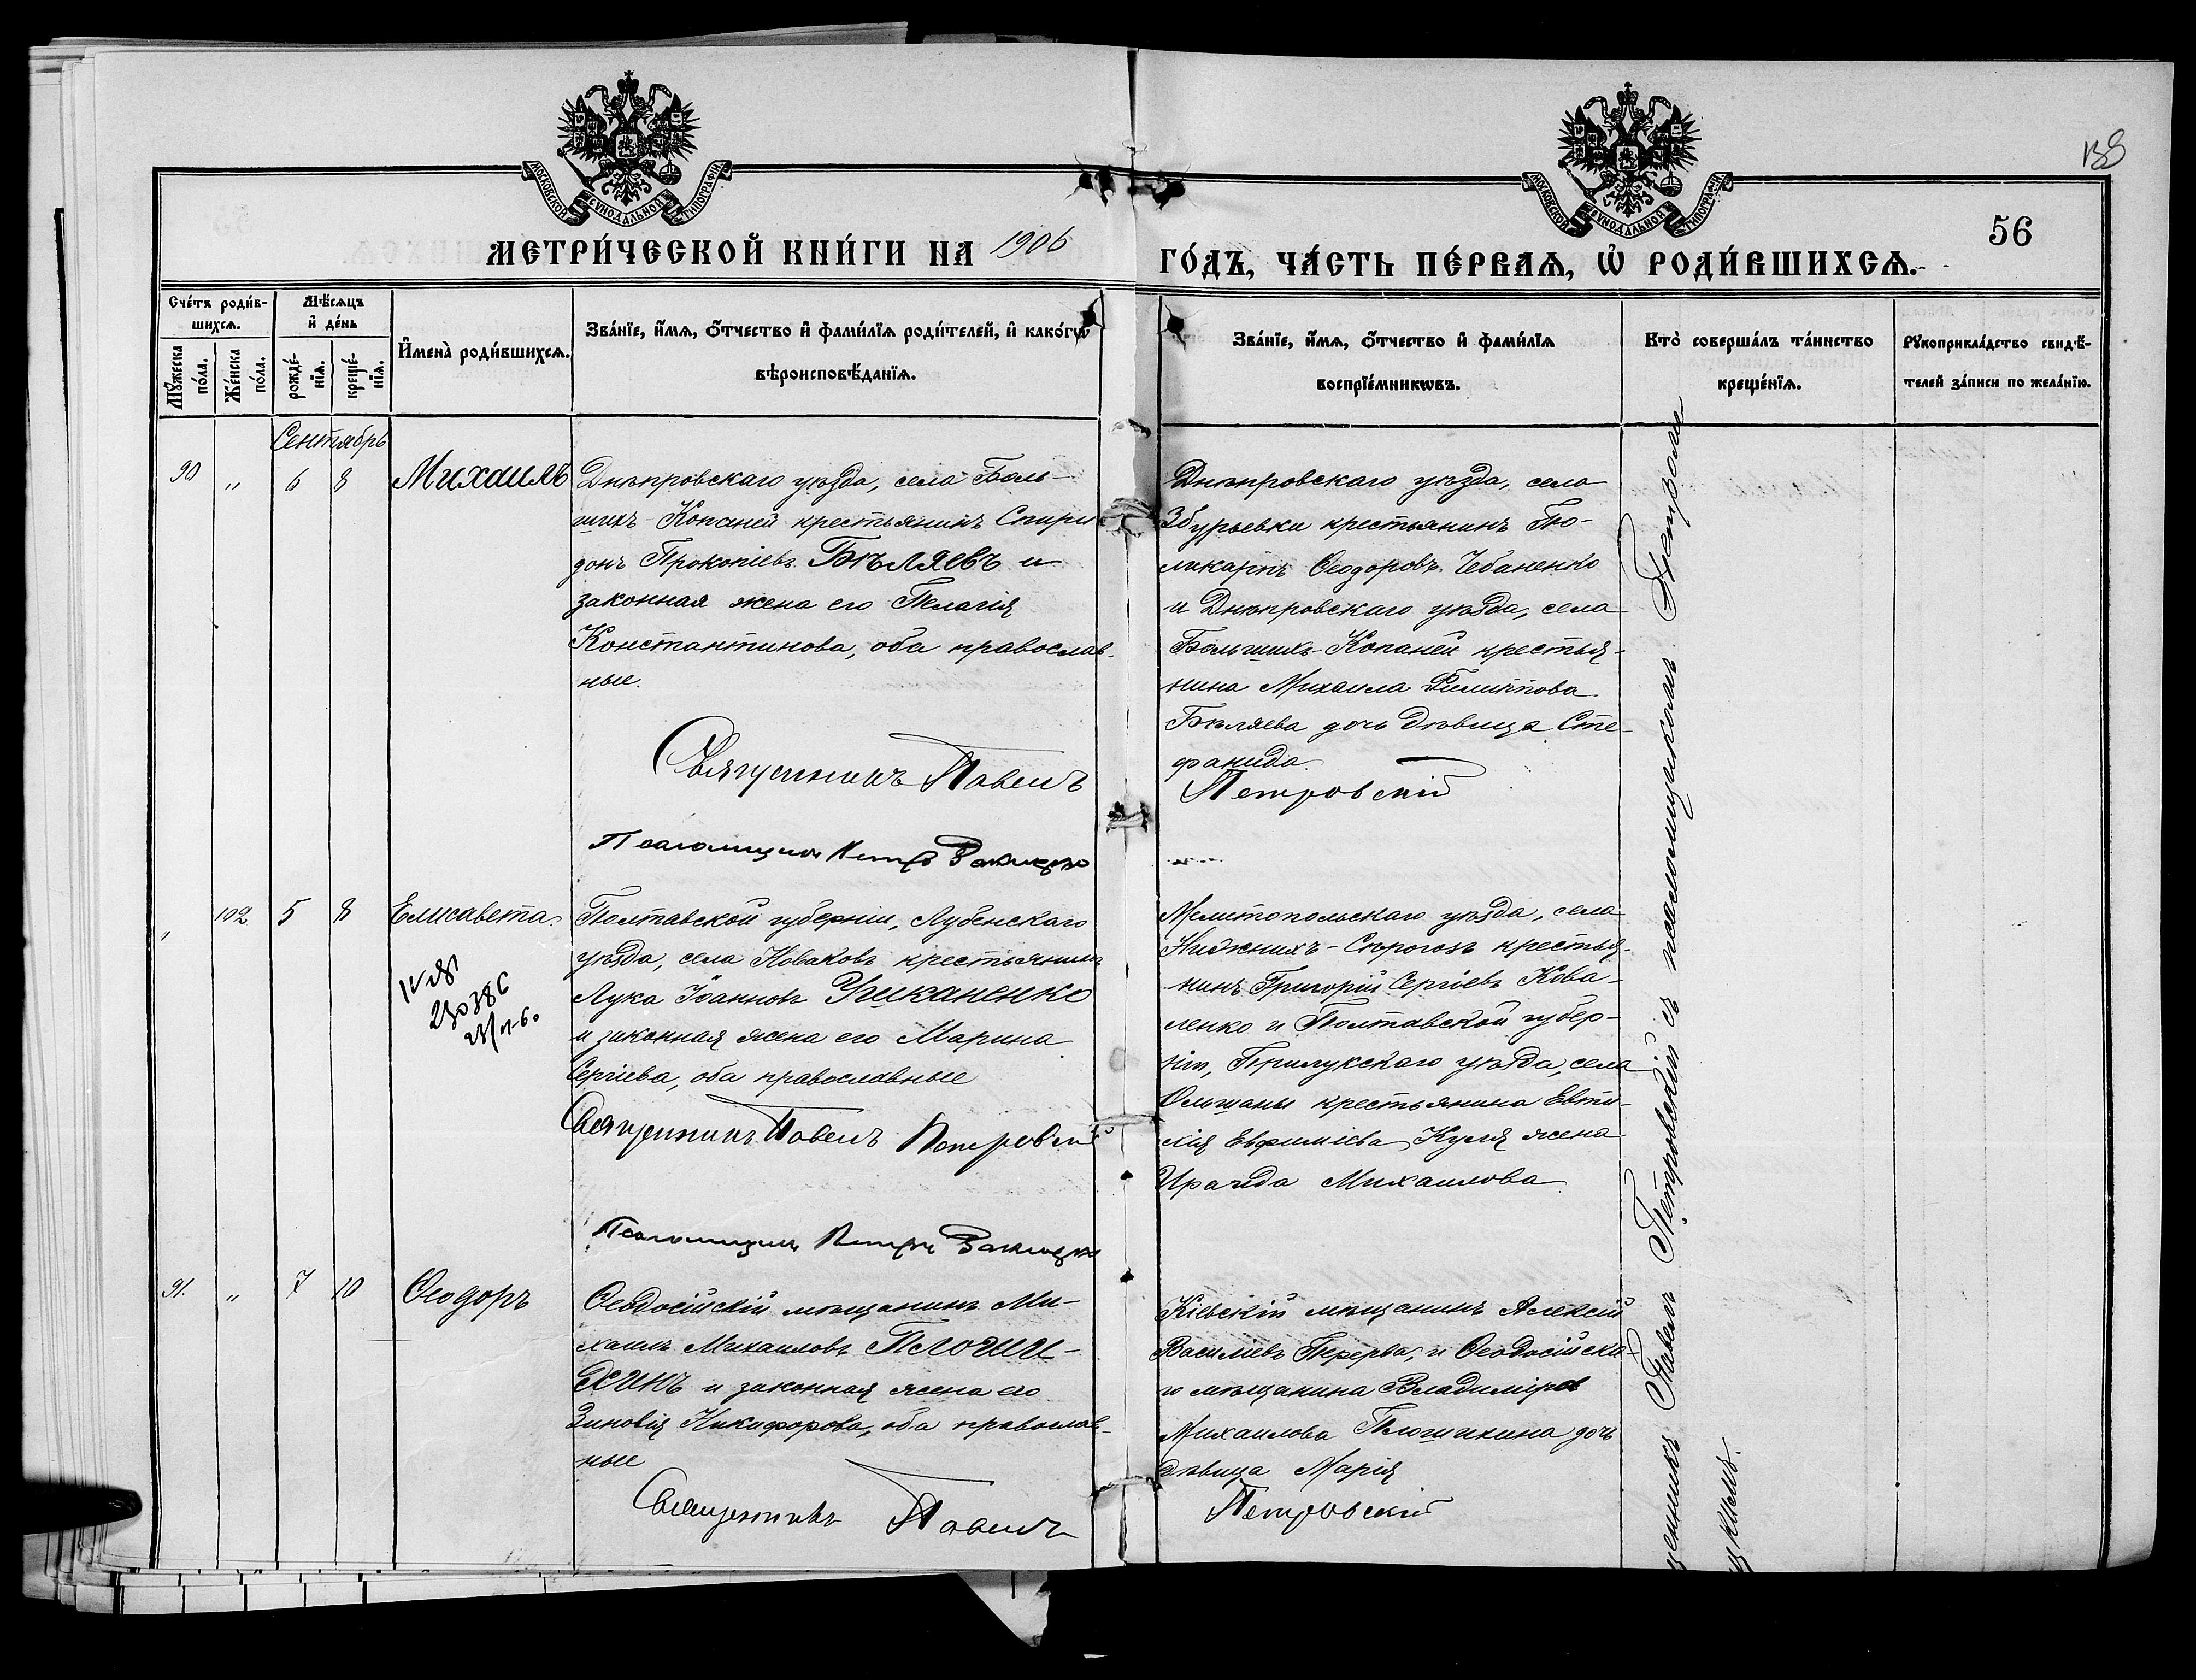 138
56
МОСКОВСКОЙ СУНОДАЛЬНОЙ ТИПОГРАФІИ
МОСКОВСКОЙ СУНОДАЛЬНОЙ ТИПОГРАФІИ
МЕТРИ́ЧЕСКОЙ КНИ́ГИ НА 1906 ГО́ДЪ, ЧА́СТЬ ПЕ́РВАѦ, Ѡ҆ РОДИ́ВШИХСѦ.
Сче́тъ роди́в-
шихсѧ.
Мѣ́сѧцъ
и҆ де́нь
Мꙋ́жеска
по́ла.
Же́нска
по́ла.
рожде́-
нїѧ.
креще́-
нїѧ.
И҆мена̀ роди́вшихсѧ.
Зва́нїе, и҆́мѧ, ѻ҆́тчество и҆ фами́лїѧ роди́телей, и҆ како́гѡ
вѣроисповѣ́данїѧ.
Зва́нїе, и҆́мѧ, ѻ҆́тчество и҆ фами́лїѧ
воспрїе́мникѡвъ.
Кто̀ соверша́лъ та́инство
креще́нїѧ.
Рꙋкоприкла́дство свидѣ́-
телей за́писи по жела́нїю.
Сентябрь
90 " 6 8 Михаилъ
Днѣпровскаго уѣзда, села Боль-
шихъ-Копаней крестьянинъ Спири-
донъ Прокопіевъ Бѣляевъ и
законная жена его Пелагія
Константинова, оба православ-
ные.
Священникъ Павелъ Петровскій
Псаломщикъ Петръ
Днѣпровскаго уѣзда, села
Збурьевки крестьянинъ По-
ликарпъ Ѳеодоровъ Чебаненко
и Днѣпровскаго уѣзда, села
Большихъ-Копаней крестья-
нина Михаила Филиппова
Бѣляева дочь дѣвица Сте-
фанида.
" 102 5 8 Елисавета.
Полтавской губерніи, Лубенскаго
уѣзда, села Новаковъ крестьянинъ
Лука Іоанновъ
и законная жена его Марина
Сергіева, оба православные
Священникъ Павелъ Петровскій
Псаломщикъ Петръ
Мелитопольскаго уѣзда, села
Нижнихъ-Сѣрогозъ крестья-
нинъ Григорій Сергіевъ Кова-
ленко и Полтавской губер-
ніи, Прилукскаго уѣзда, села
Ольшаны крестьянина Евти-
хія Евфиміева Куля жена
Ираида Михаилова.
91. " 7 10 Ѳеодоръ
Ѳеодосійскій мѣщанинъ Ми-
хаилъ Михаиловъ Плюши-
хинъ и законная жена его
Зиновія Никифорова, оба православ-
ные
Священникъ Павелъ Петровскій
Кіевскій мѣщанинъ Алексій
Василіевъ Перерва, и Ѳеодосійска-
го мѣщанина Владиміра
Михаилова Плюшихина дочь
дѣвица Марія
Павелъ Петровскій съ псаломщикомъ Петромъ